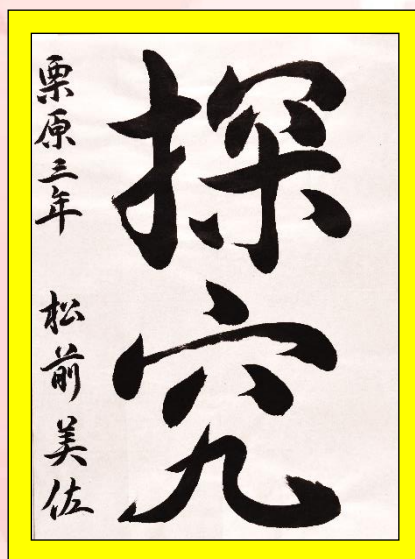 探究
栗原三年 松前美佐